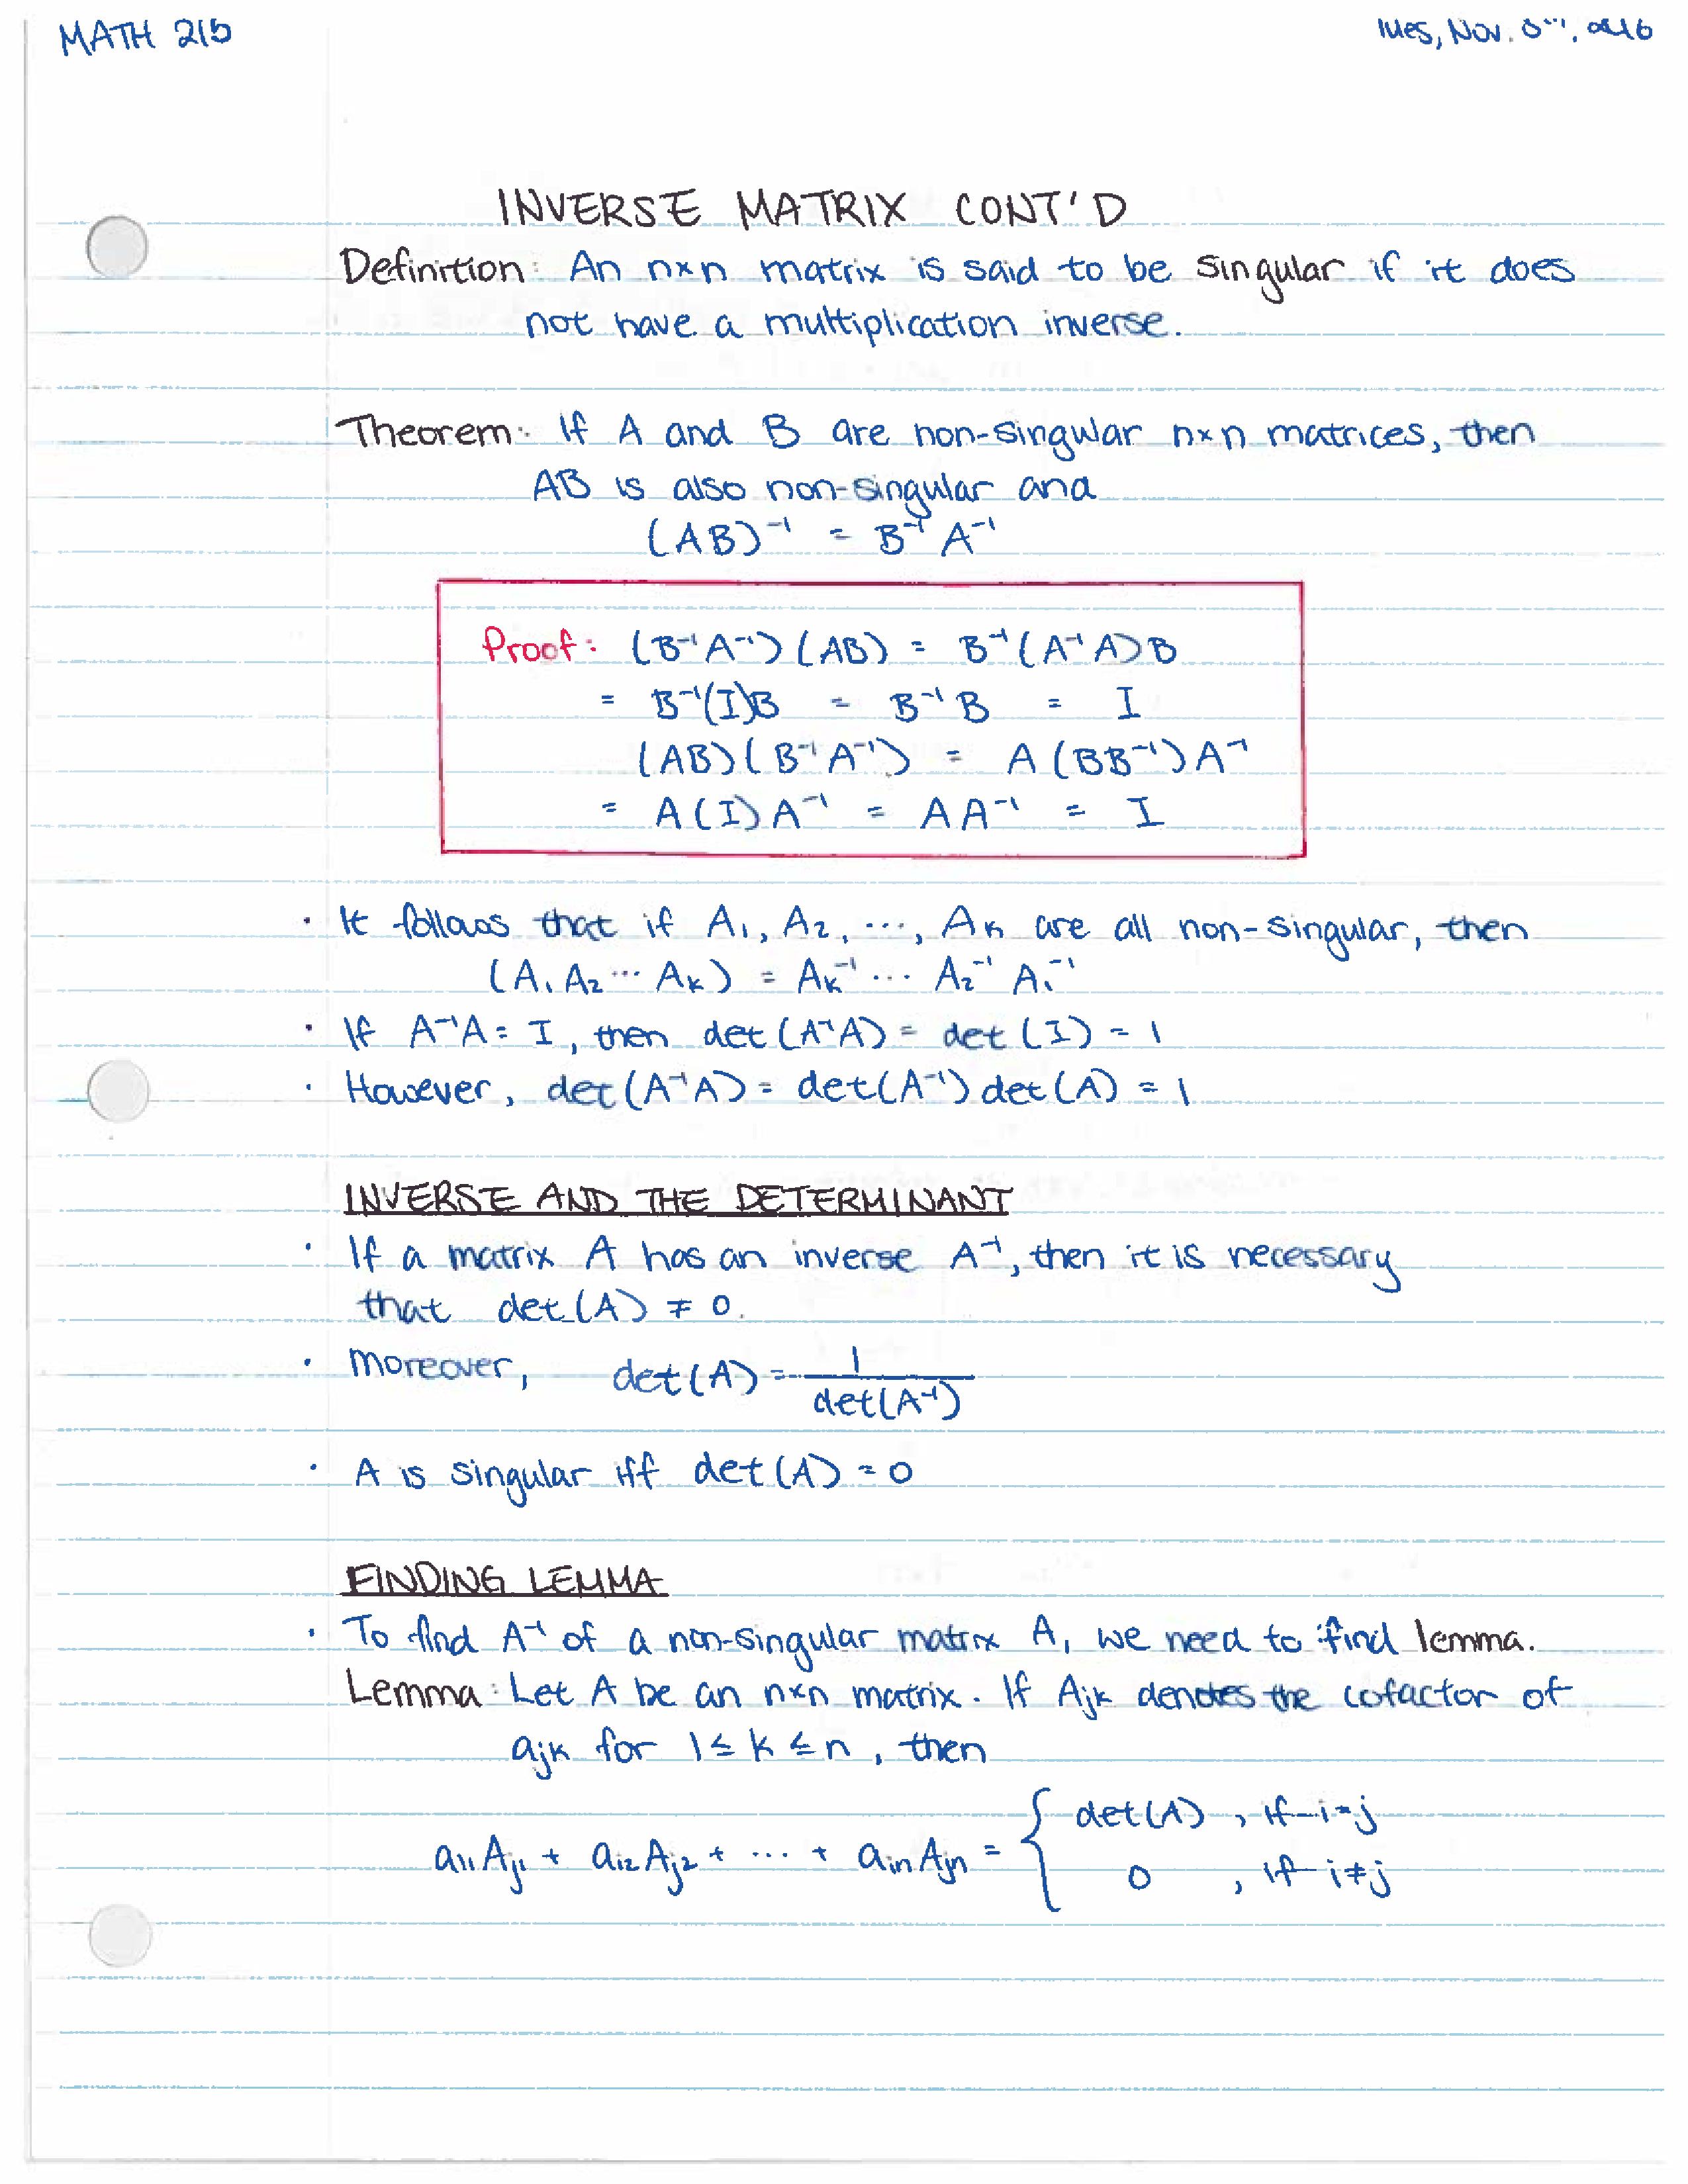 MATH 215
Tues, Nov. 8th, 2016
INVERSE MATRIX CONT'D
Definition: An n×n matrix is said to be singular if it does
not have a multiplication inverse.
Theorem: If A and B are non-singular n×n matrices, then
AB is also non-singular and
(AB)⁻¹ = B⁻¹A⁻¹
Proof: (B⁻¹A⁻¹)(AB) = B⁻¹(A⁻¹A)B
= B⁻¹(I)B = B⁻¹B = I
(AB)(B⁻¹A⁻¹) = A(BB⁻¹)A⁻¹
= A(I)A⁻¹ = AA⁻¹ = I
· It follows that if A₁, A₂, ..., Aₖ are all non-singular, then
(A₁A₂ ... Aₖ) = Aₖ⁻¹ ... A₂⁻¹ A₁⁻¹
· If A⁻¹A = I, then det(A⁻¹A) = det(I) = 1
· However, det(A⁻¹A) = det(A⁻¹)det(A) = 1
INVERSE AND THE DETERMINANT
· If a matrix A has an inverse A⁻¹, then it is necessary
that det(A) ≠ 0.
· moreover, det(A) = 1/det(A⁻¹)
· A is singular iff det(A) = 0
FINDING LEMMA
· To find A⁻¹ of a non-singular matrix A, we need to find lemma.
Lemma: Let A be an n×n matrix. If Ajk denotes the cofactor of
ajk for 1 ≤ k ≤ n, then
ai1Aj1 + ai2Aj2 + ... + ainAjn = { det(A), if i=j
0, if i≠j